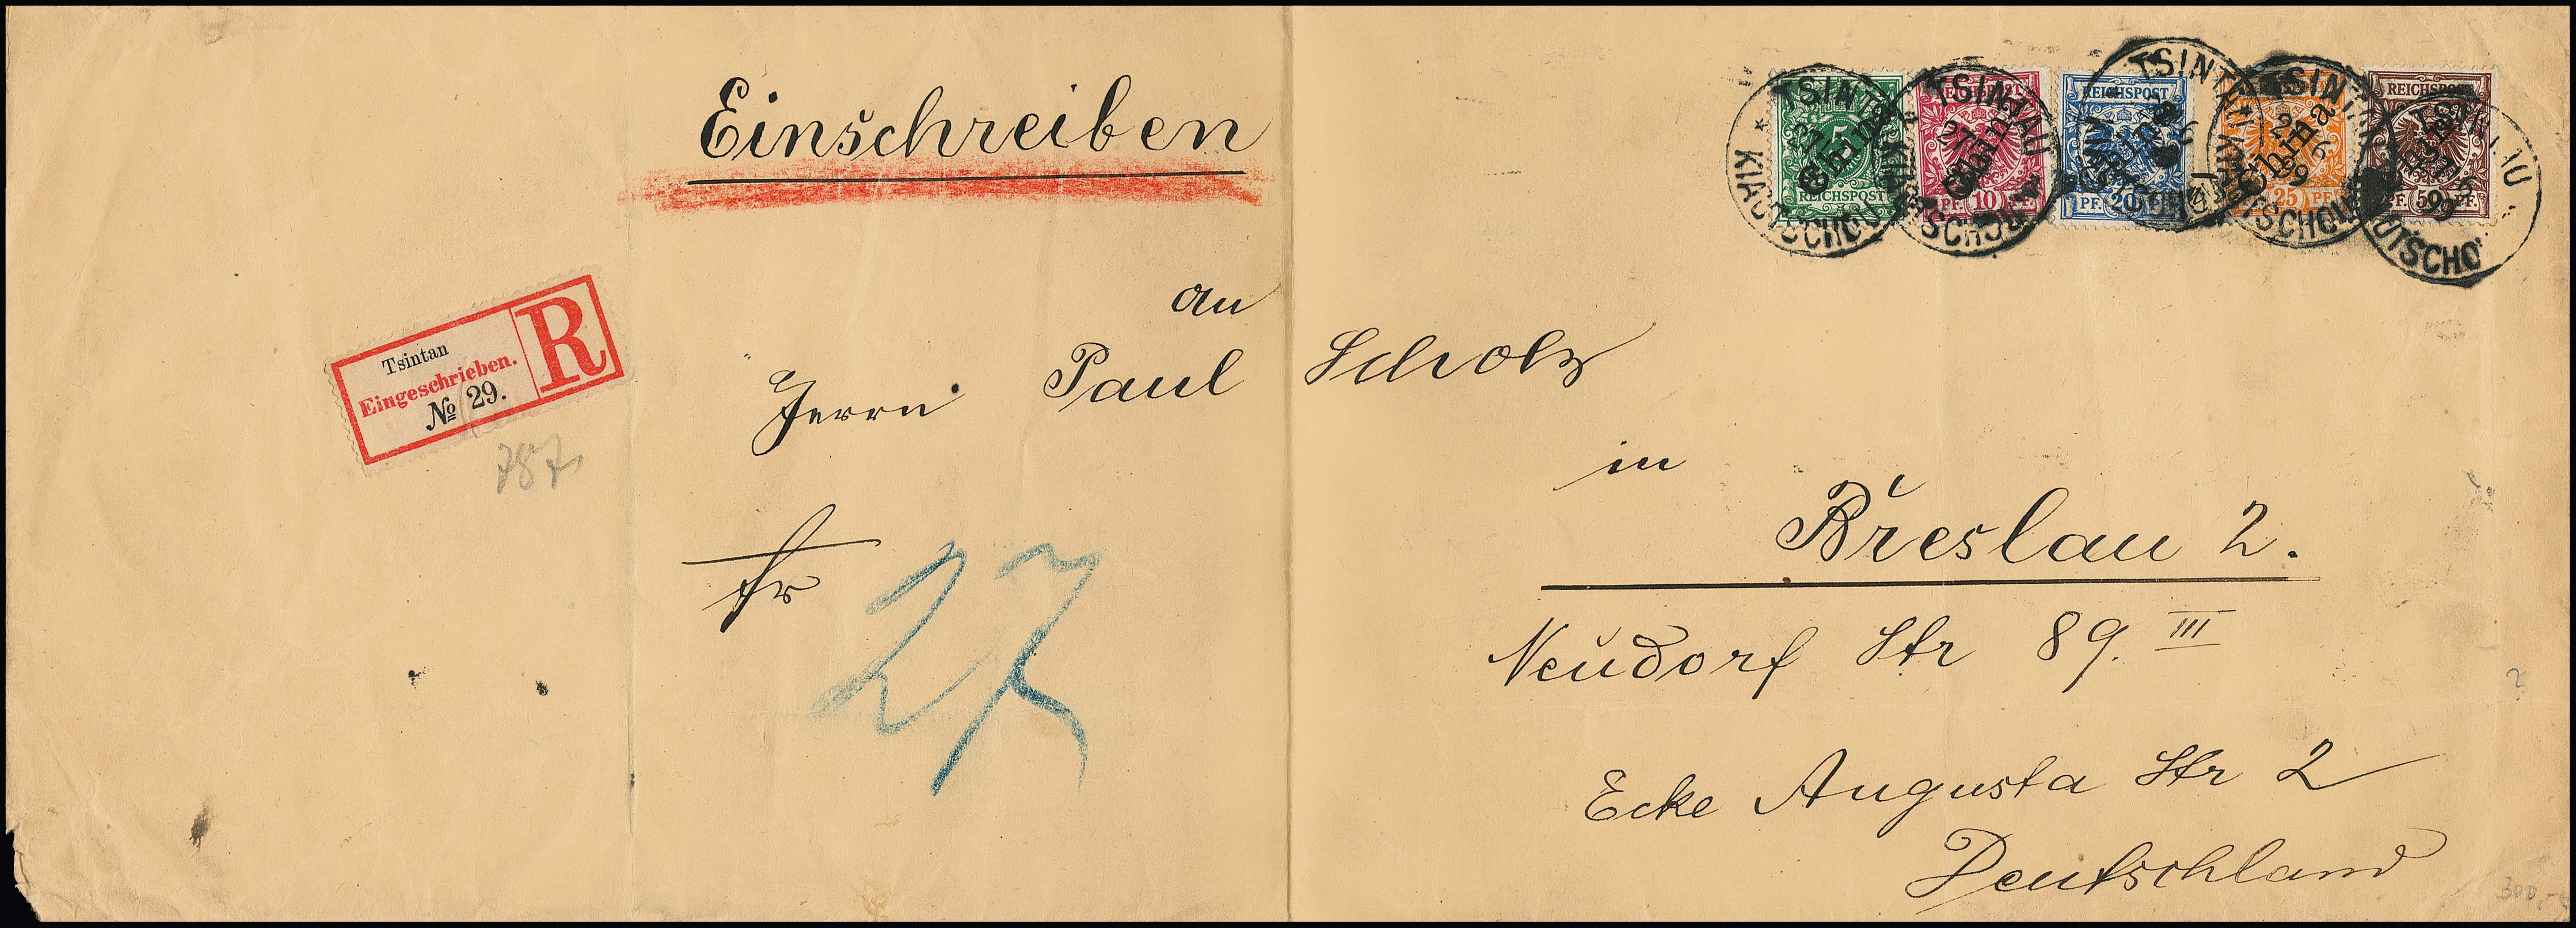 Einschreiben
REICHSPOST
5
China
REICHSPOST
PF. 10 PF.
China
REICHSPOST
PF. 20
China
25 PF.
China
REICHSPOST
PF. 50 PF.
China
TSINTAU
KIAUTSCHOU
TSINTAU
27
TSINTAU
TSINTAU
KIAUTSCHOU
Tsintan
Eingeschrieben.
№ 29.
R
787
an
Herrn Paul Scholz
in
Breslau 2.
fr
27
Neudorf Str 89. III
Ecke Augusta Str 2
Deutschland
300,-